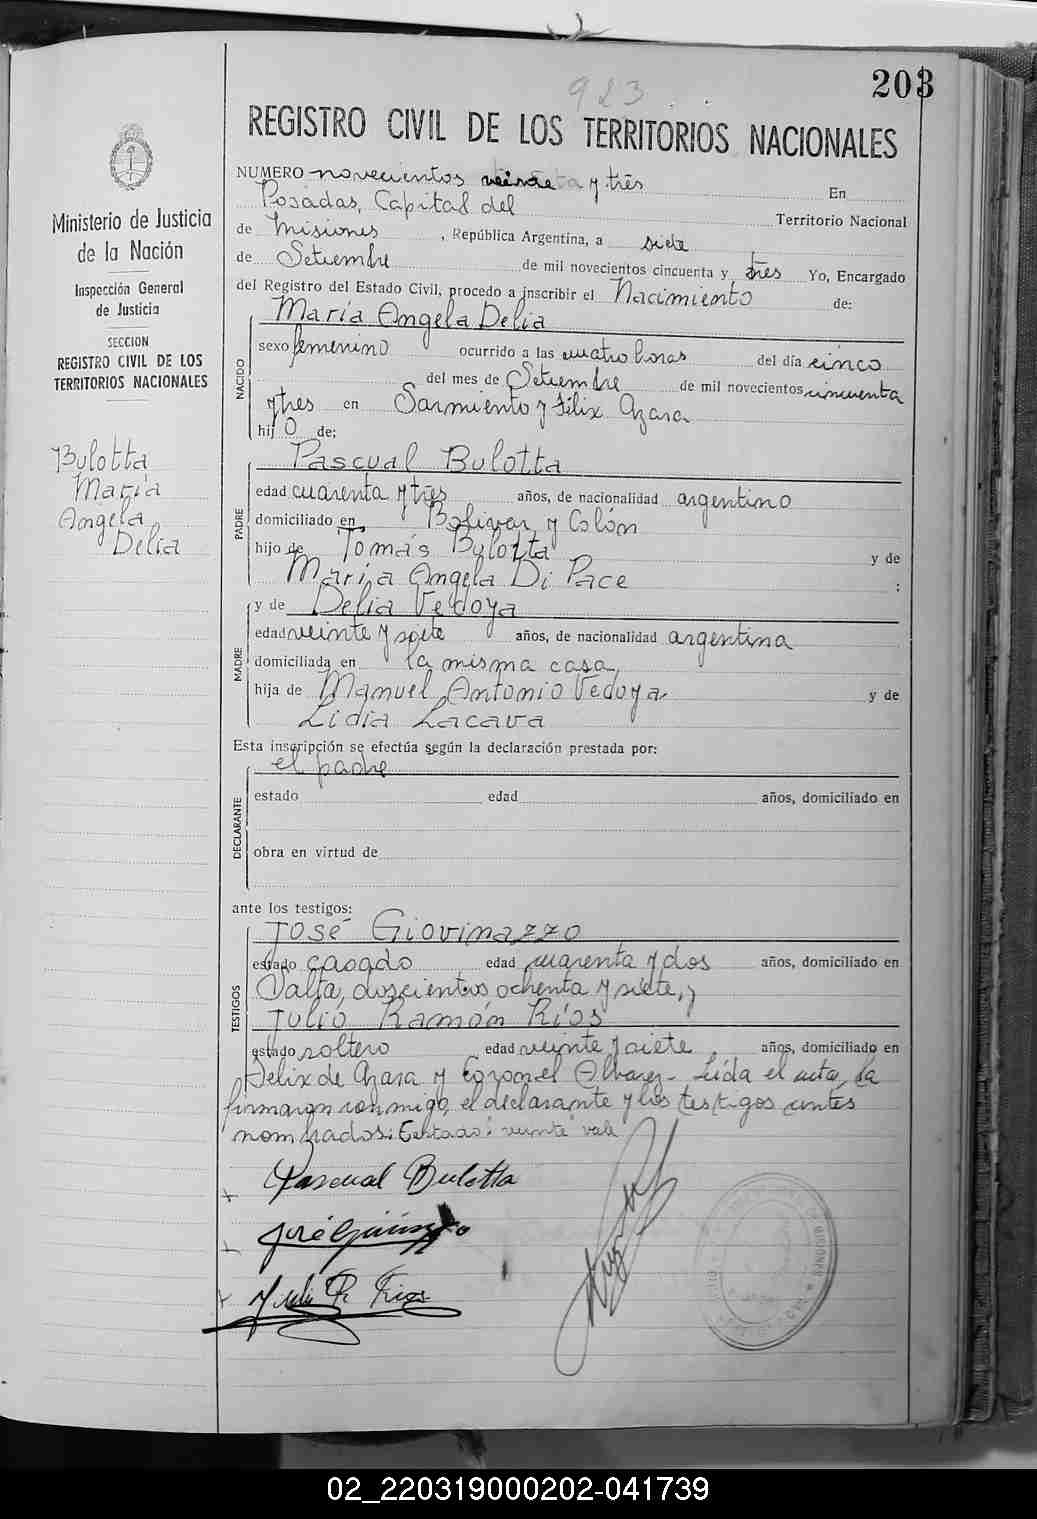 923
203
REGISTRO CIVIL DE LOS TERRITORIOS NACIONALES
Ministerio de Justicia
de la Nación
Inspección General
de Justicia
SECCION
REGISTRO CIVIL DE LOS
TERRITORIOS NACIONALES
Bulotta
María
Angela
Delia
NUMERO novecientos veinte y trés En
Posadas, Capital del Territorio Nacional
de Misiones, República Argentina, a siete
de Setiembre de mil novecientos cincuenta y tres Yo, Encargado
del Registro del Estado Civil, procedo a inscribir el Nacimiento de:
NACIDO
María Angela Delia
sexo femenino ocurrido a las cuatro horas del día cinco
del mes de Setiembre de mil novecientos cincuenta
y tres en Sarmiento y Félix Azara
hij O de:
PADRE
Pascual Bulotta
edad cuarenta y tres años, de nacionalidad argentino
domiciliado en Bolivar y Colón
hijo de Tomás Bulotta y de
María Angela Di Pace ;
MADRE
y de Delia Vedoya
edad veinte y siete años, de nacionalidad argentina
domiciliada en la misma casa,
hija de Manuel Antonio Vedoya y de
Lidia Lacava
Esta inscripción se efectúa según la declaración prestada por:
DECLARANTE
el padre
estado edad años, domiciliado en
obra en virtud de
ante los testigos:
TESTIGOS
José Giovinazzo
estado casado edad cuarenta y dos años, domiciliado en
Salta, doscientos ochenta y siete, y
Julio Ramón Ríos
estado soltero edad veinte y siete años, domiciliado en
Félix de Azara y Coronel Alvarez - Leída el acta, la
firmaron conmigo, el declarante y los testigos antes
nombrados: Testado: veinte vale
Pascual Bulotta
02_220319000202-041739